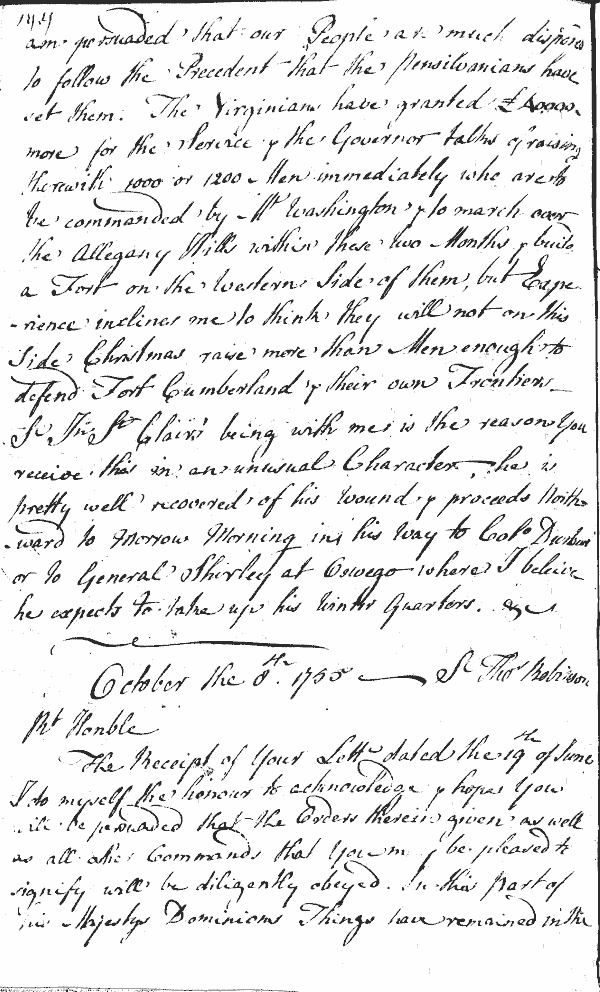 144
am persuaded that our People are much dispos'd
to follow the Precedent that the Pensilvanians have
set them. The Virginians have granted £40000
more for the Service & the Governor talks of raising
therewith 1000 or 1200 Men immediately who are to
be commanded by Mr Washington & to march over
the Allegany Hills within these two Months & build
a Fort on the Western Side of them, but Expe
-rience inclines me to think they will not on this
Side Christmas raise more than Men enough to
defend Fort Cumberland & their own Frontiers
Sr Jno St Clair's being with me is the reason You
receive this in an unusual Character, he is
pretty well recovered of his Wound & proceeds North-
-ward to Morrow Morning in his Way to Colo Dunbar
or to General Shirley at Oswego where I beleive
he expects to take up his Winter Quarters. &c
October the 8th. 1755 Sr Thos Robinson
Rt Honble
The Receipt of Your Lettr dated the 19th of June
I do myself the honour to acknowledge & hope You
will be persuaded that the Orders therein given as well
as all other Commands that You may be pleased to
signify will be diligently obeyed. In this part of
his Majestys Dominions Things have remained in the